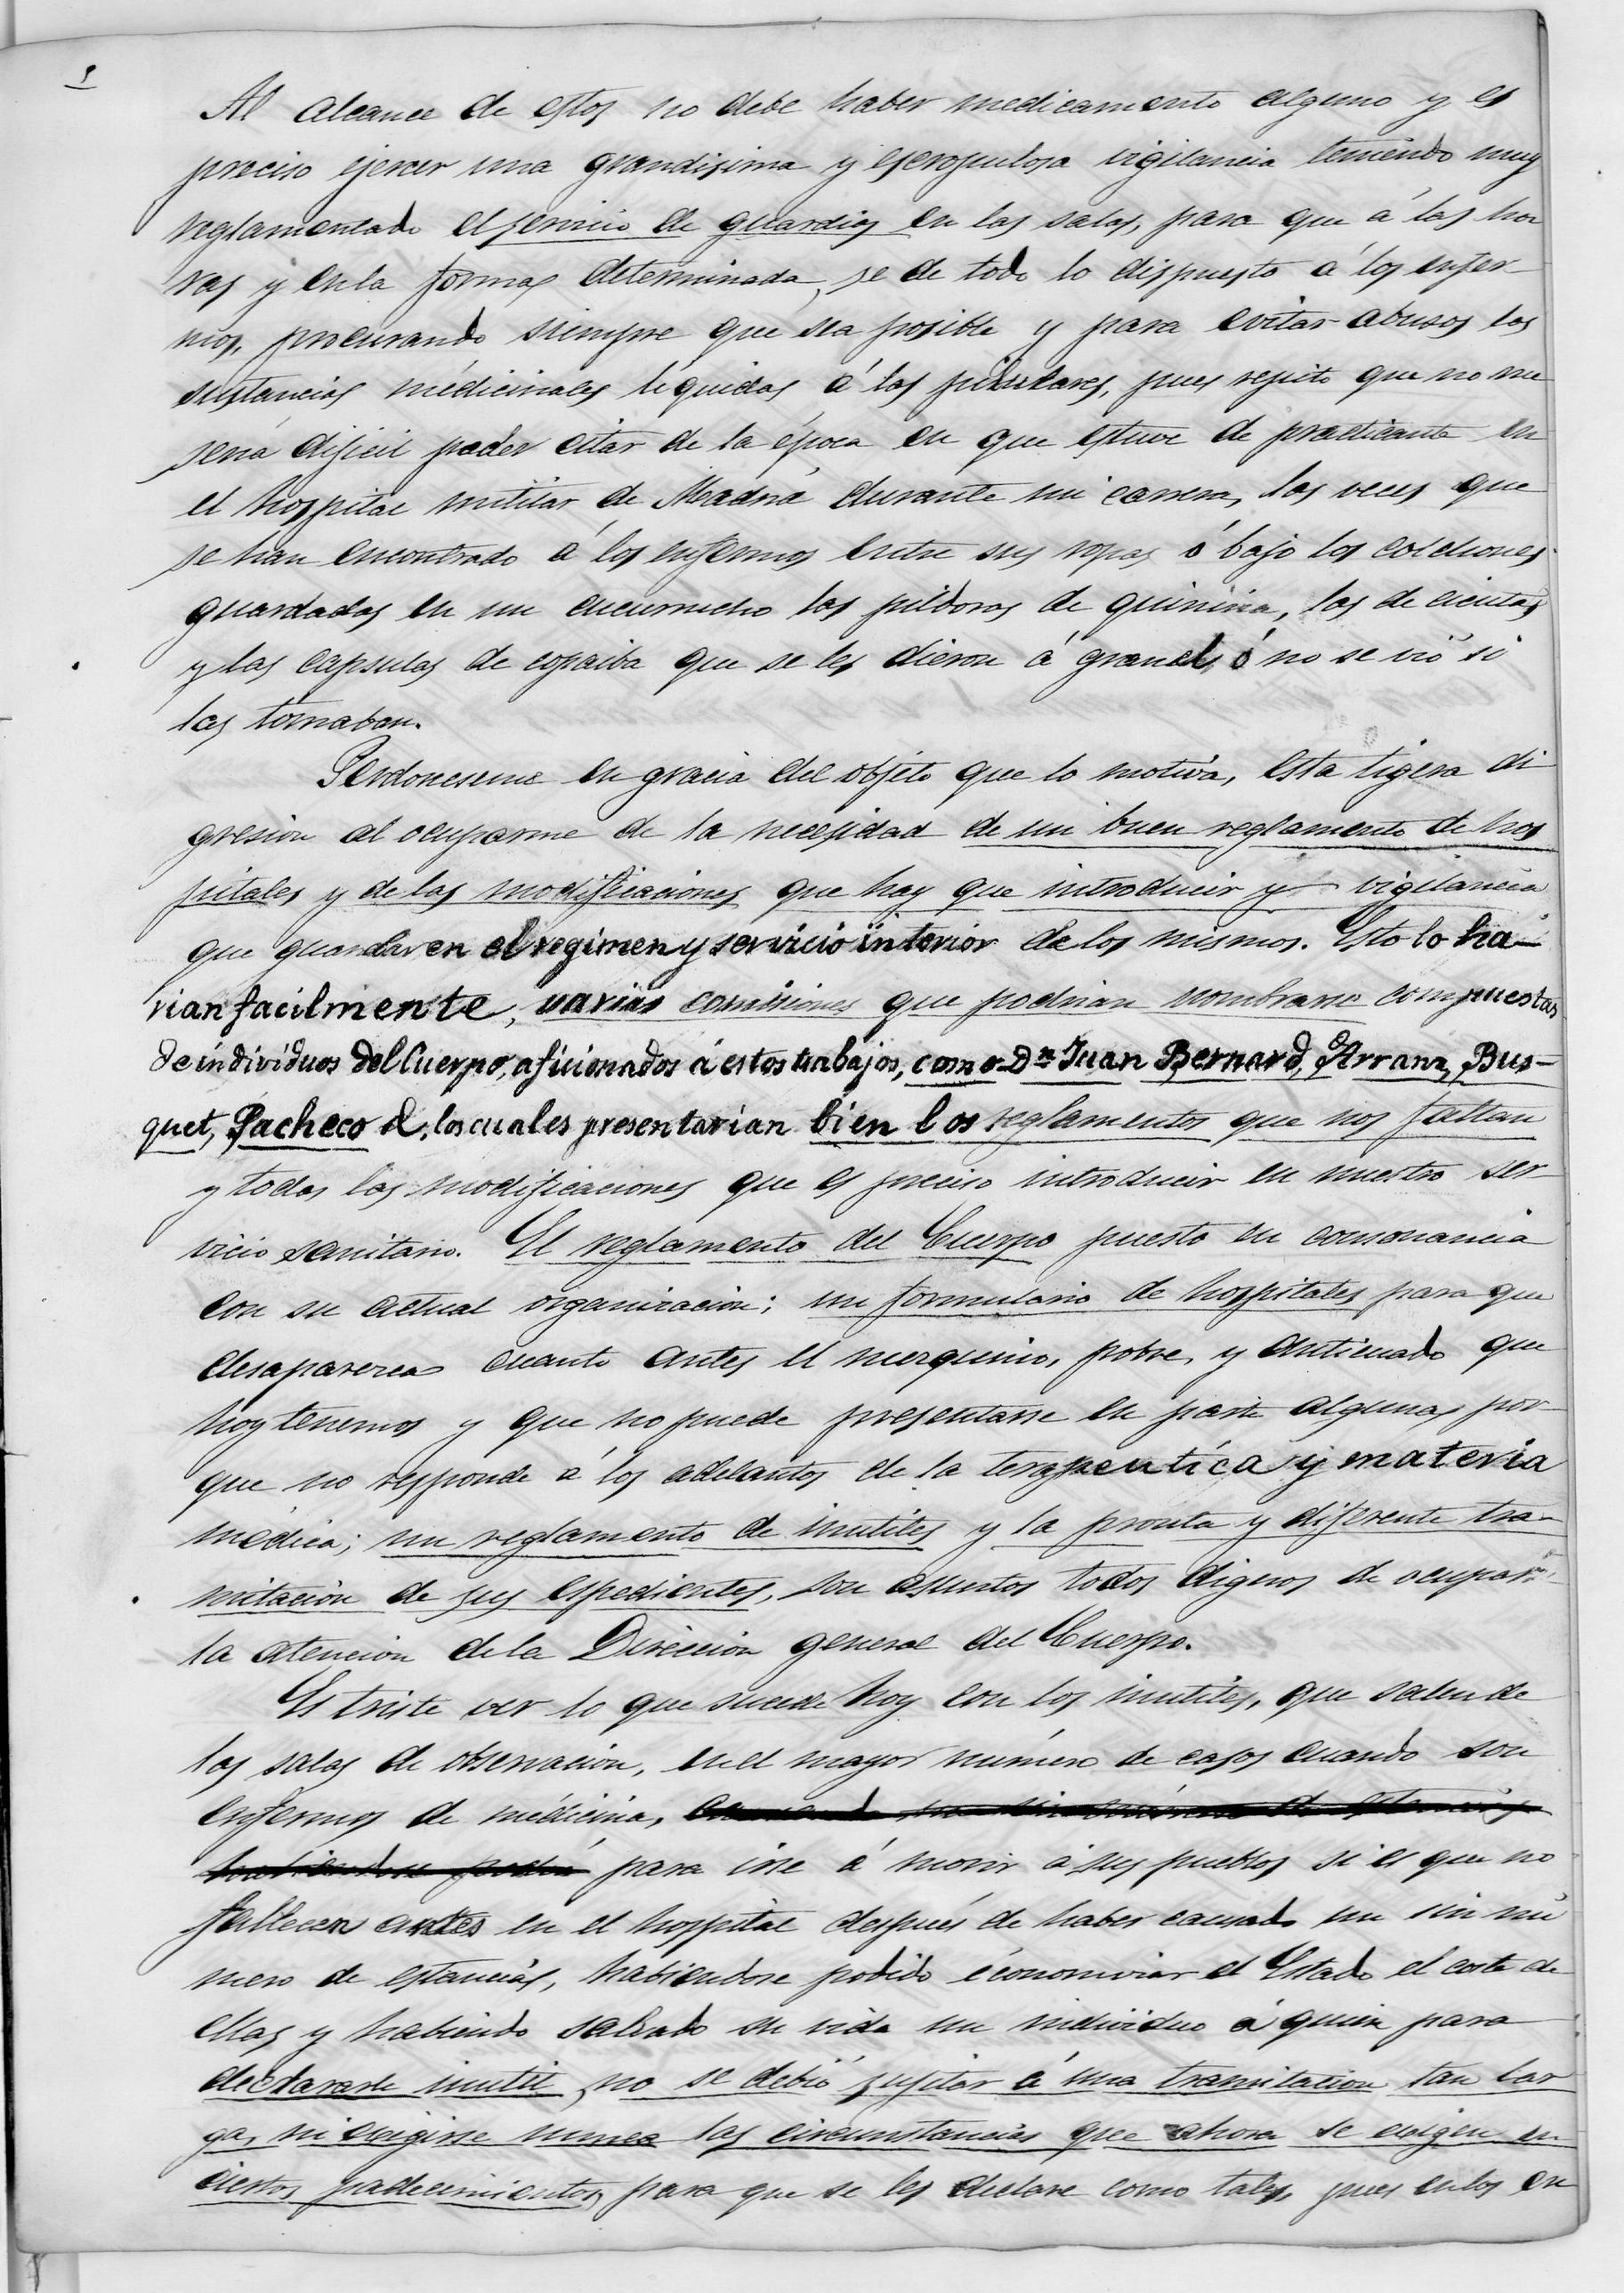 Al alcance de estos no debe haber medicamento alguno y es
preciso ejercer una grandisima y escrupulosa vigilancia teniendo muy
reglamentado el servicio de guardias en las salas, para que á las ho
ras y en la forma determinada, se de todo lo dispuesto á los enfer-
mos, procurando siempre que sea posible y para evitar abusos las
sustancias médicinales liquidas á las pilulares, pues repito que no me
seria dificil poder citar de la época en que estuve de practicante en
el hospital militar de Madrid durante mi carrera, las veces que
se han encontrado á los enfermos entre sus ropas ó bajo los colchones
guardadas en un cucurucho las pildoras de quinina, las de cicuta
y las capsulas de copaiba que se les dieron á granel, ó no se vió si
las tomaban.
Perdoneseme en gracia del objeto que lo motiva, esta ligera di
gresion al ocuparme de la necesidad de un buen reglamento de hos
pitales y de las modificaciones que hay que introducir y vigilancia
que guardar en el regimen y servicio interior de los mismos. Esto lo ha-
rian facilmente, varias comisiones que podrian nombrarse compuestas
de individuos del Cuerpo, aficionados á estos trabajos, como Dn Juan Bernard, Arranz, Bus-
quet, Pacheco &, los cuales presentarian bien los reglamentos que nos faltan
y todas las modificaciones que es preciso introducir en nuestro ser-
vicio sanitario. El reglamento del Cuerpo puesto en consonancia
con su actual organizacion; un formulario de hospitales para que
desaparezca cuanto antes el mezquino, pobre, y anticuado que
hoy tenemos y que no puede presentarse en parte alguna, por-
que no responde á los adelantos de la terapeutíca y materia
médica; un reglamento de inutiles y la pronta y diferente tra-
mitacion de sus espedientes, son asuntos todos dignos de ocupar
la atencion de la Direccion general del Cuerpo.
Es triste ver lo que sucede hoy con los inutiles, que salen de
las salas de observacion, en el mayor número de casos cuando son
enfermos de médicina,
para irse á morir á sus pueblos si es que no
fallecen antes en el hospital después de haber causado un sin nú
mero de estancias, habiendose podido économizar el Estado el coste de
ellas y habiendo salvado su vida un individuo á quien para
declararle inutil, no se debió sujetar á una tramitacion tan lar
ga, ni exigirse nunca las circunstancias que ahora se exigen en
ciertos padecimientos, para que se les declare como tales, pues en los en